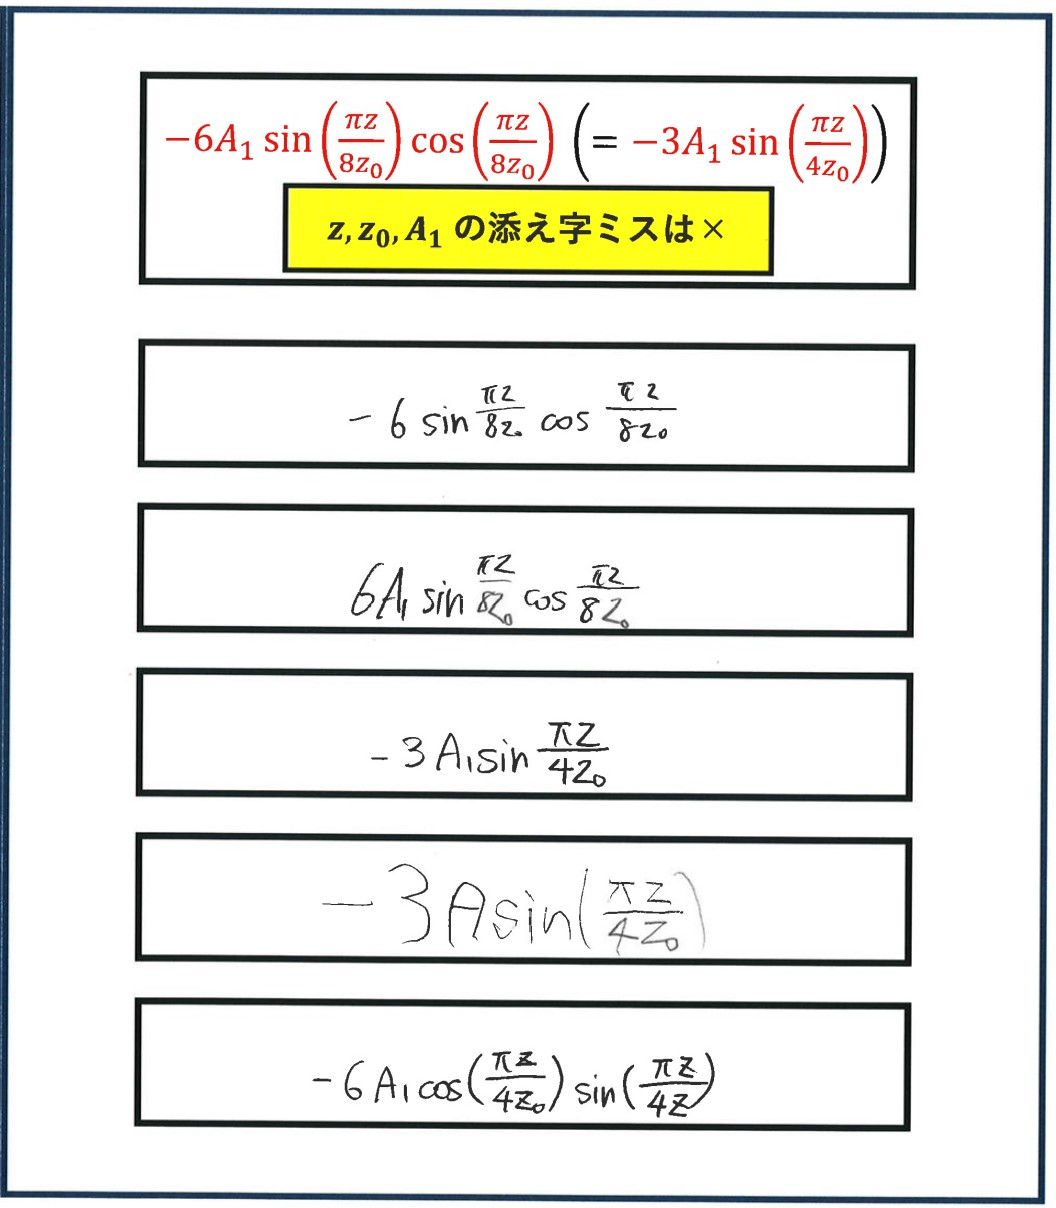 −6A₁ sin(πz/8z₀) cos(πz/8z₀) (= −3A₁ sin(πz/4z₀))
z, z₀, A₁ の添え字ミスは×
−6 sin πz/8z₀ cos πz/8z₀
6A₁ sin πz/8z₀ cos πz/8z₀
−3A₁ sin πz/4z₀
−3A sin(πz/4z₀)
−6A₁ cos(πz/4z₀) sin(πz/4z)